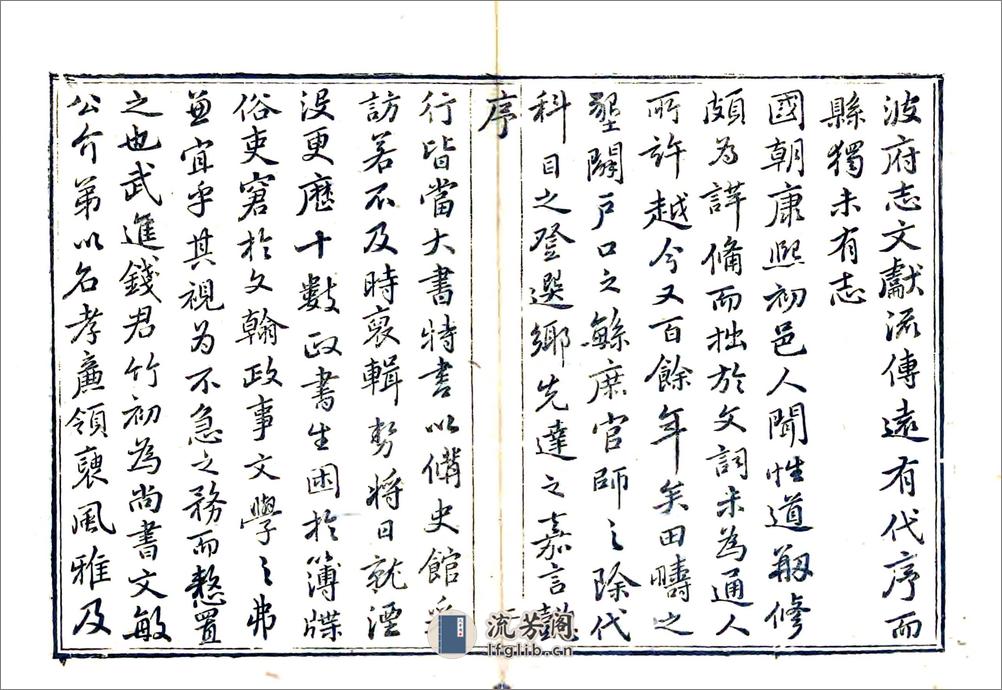 波府志文獻流傳遠有代序而
縣獨未有志
國朝康熙初邑人聞性道剏修
頗為詳備而拙於文詞未為通人
所許越今又百餘年矣田疇之
墾闢戶口之緐庶官師之除代
科目之登選鄉先達之嘉言懿
序
行皆當大書特書以備史館采
訪若不及時裒輯勢將日就湮
沒更歷十數政書生困於簿牒
俗吏窘於文翰政事文學之弗
兼宜乎其視為不急之務而憗置
之也武進錢君竹初為尚書文敏
公介弟以名孝廉領褎風雅及
流芳阁
lfglib.cn